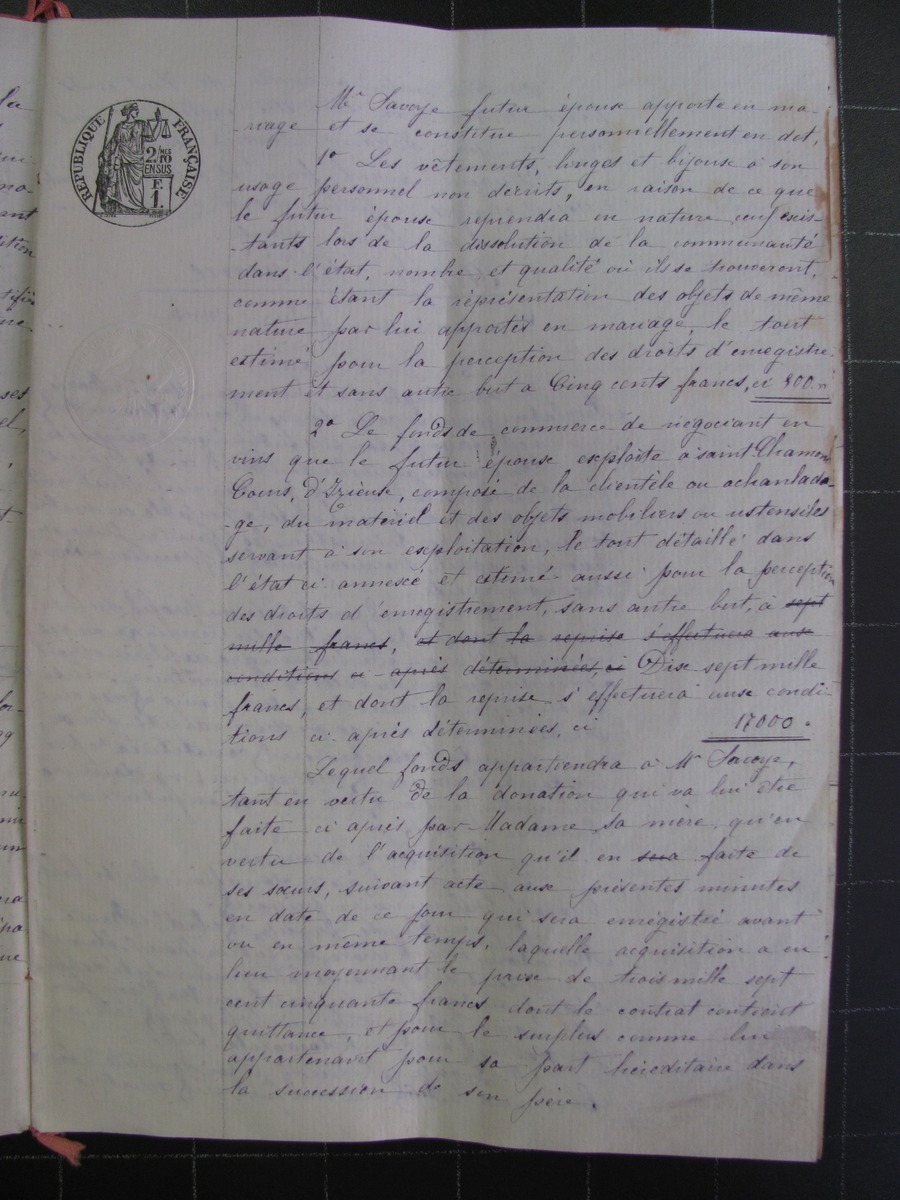 RÉPUBLIQUE FRANÇAISE
2/10 MES
EN SUS
F.
1.
Mr Savoye futur époux apporte en ma-
riage et se constitue personnellement en dot,
1º Les vêtements, linges et bijoux à son
usage personnel non décrits, en raison de ce que
le futur époux reprendra en nature ceux exis-
tants lors de la dissolution de la communauté
dans l'état, nombre et qualité où ils se trouveront,
comme étant la représentation des objets de même
nature par lui apportés en mariage, le tout
estimé pour la perception des droits d'enregistre-
ment et sans autre but à Cinq cents francs, ci 500 "
2º Le fonds de commerce de négociant en
vins que le futur époux exploite à Saint Chamond
Cours, d'Izieux, composé de la clientèle ou achanlada-
ge, du matériel et des objets mobiliers ou ustensiles
servant à son exploitation, le tout détaillé dans
l'état ci annexé et estimé aussi pour la perception
des droits d'enregistrement, sans autre but, à sept
mille francs, et dont la reprise s'effectuera aux
conditions ci-après déterminées, ci Dix sept mille
francs, et dont la reprise s'effectuera aux condi-
tions ci-après déterminées, ci 17000 "
Lequel fonds appartiendra à Mr Savoye,
tant en vertu de la donation qui va lui être
faite ci après par Madame sa mère, qu'en
vertu de l'acquisition qu'il en sera faite de
ses soeurs, suivant acte aux présentes minutes
en date de ce jour qui sera enregistré avant
ou en même temps, laquelle acquisition a eu
lieu moyennant le prix de trois mille sept
cent cinquante francs dont le contrat contient
quittance, et pour le surplus comme lui
appartenant pour sa part héréditaire dans
la succession de son père.